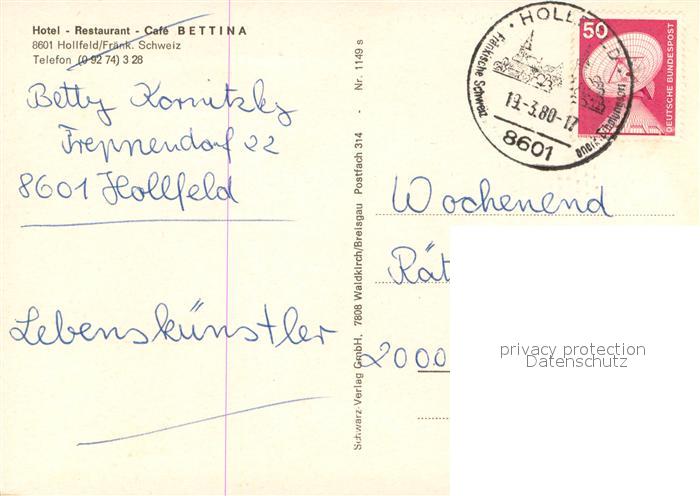 Hotel - Restaurant - Café BETTINA
8601 Hollfeld/Fränk. Schweiz
Telefon (0 92 74) 3 28
Betty Kornitzky
Treppendorf 22
8601 Hollfeld
Lebenskünstler
Schwarz-Verlag GmbH. 7808 Waldkirch/Breisgau Postfach 314 - Nr. 1149 s
HOLLFELD
Fränkische Schweiz
19.-3.80-17
8601
50
DEUTSCHE BUNDESPOST
Wochenend
Rät
2000
privacy protection
Datenschutz